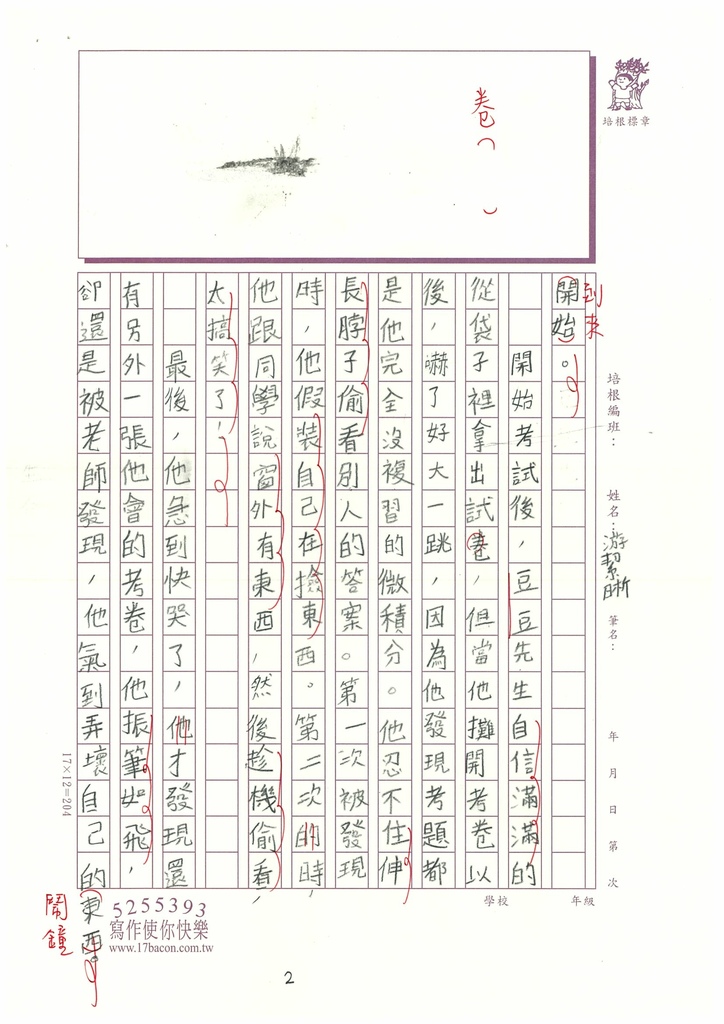 卷( )
培根標章
到來
開始。
開始考試後，豆豆先生自信滿滿的
從袋子裡拿出試卷，但當他攤開考卷以
後，嚇了好大一跳，因為他發現考題都
是他完全沒複習的微積分。他忍不住伸
長脖子偷看別人的答案。第一次被發現
時，他假裝自己在撿東西。第二次的時，
他跟同學說窗外有東西，然後趁機偷看，
太搞笑了！
最後，他急到快哭了，他才發現還
有另外一張他會的考卷，他振筆如飛，
卻還是被老師發現，他氣到弄壞自己的東西。
鬧鐘
培根編班：
姓名：游絜晰
筆名：
年 月 日 第 次
學校
年級
17×12=204
5255393
寫作使你快樂
www.17bacon.com.tw
2